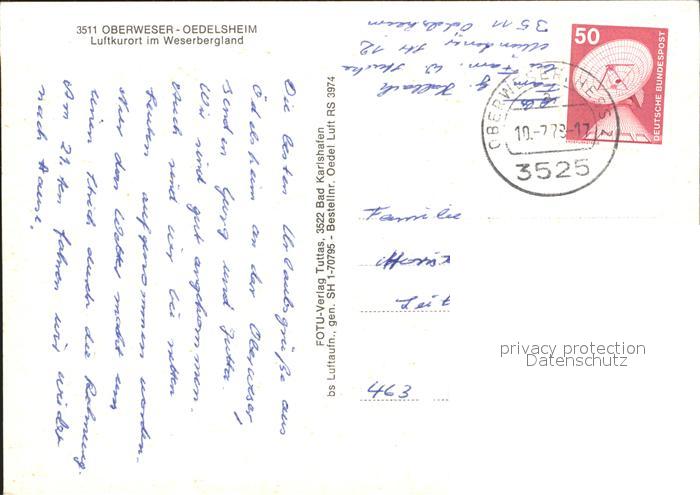 3511 OBERWESER - OEDELSHEIM
Luftkurort im Weserbergland
Die besten Urlaubsgrüße aus
Ödelsheim an der Oberweser,
senden Georg und Jutta.
Wir sind gut angekommen.
Auch sind wir bei netten
Leuten aufgenommen worden.
Nur das Wetter macht uns
einen Strich durch die Rechnung.
Am 21. ten fahren wir wieder
nach Hause.
FOTU-Verlag Tuttas, 3522 Bad Karlshafen
bs Luftaufn., gen. SH 1-70795 - Bestellnr. Oedel Luft RS 3974
Fam. G.
bei Fam. W.
Mündener Str 12
3511 Oedelsheim
50
DEUTSCHE BUNDESPOST
OBERWESER
10.-7.79-17
3525
Familie
463
privacy protection
Datenschutz